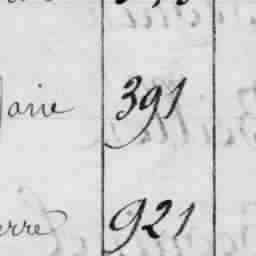 arie 391
erre 921